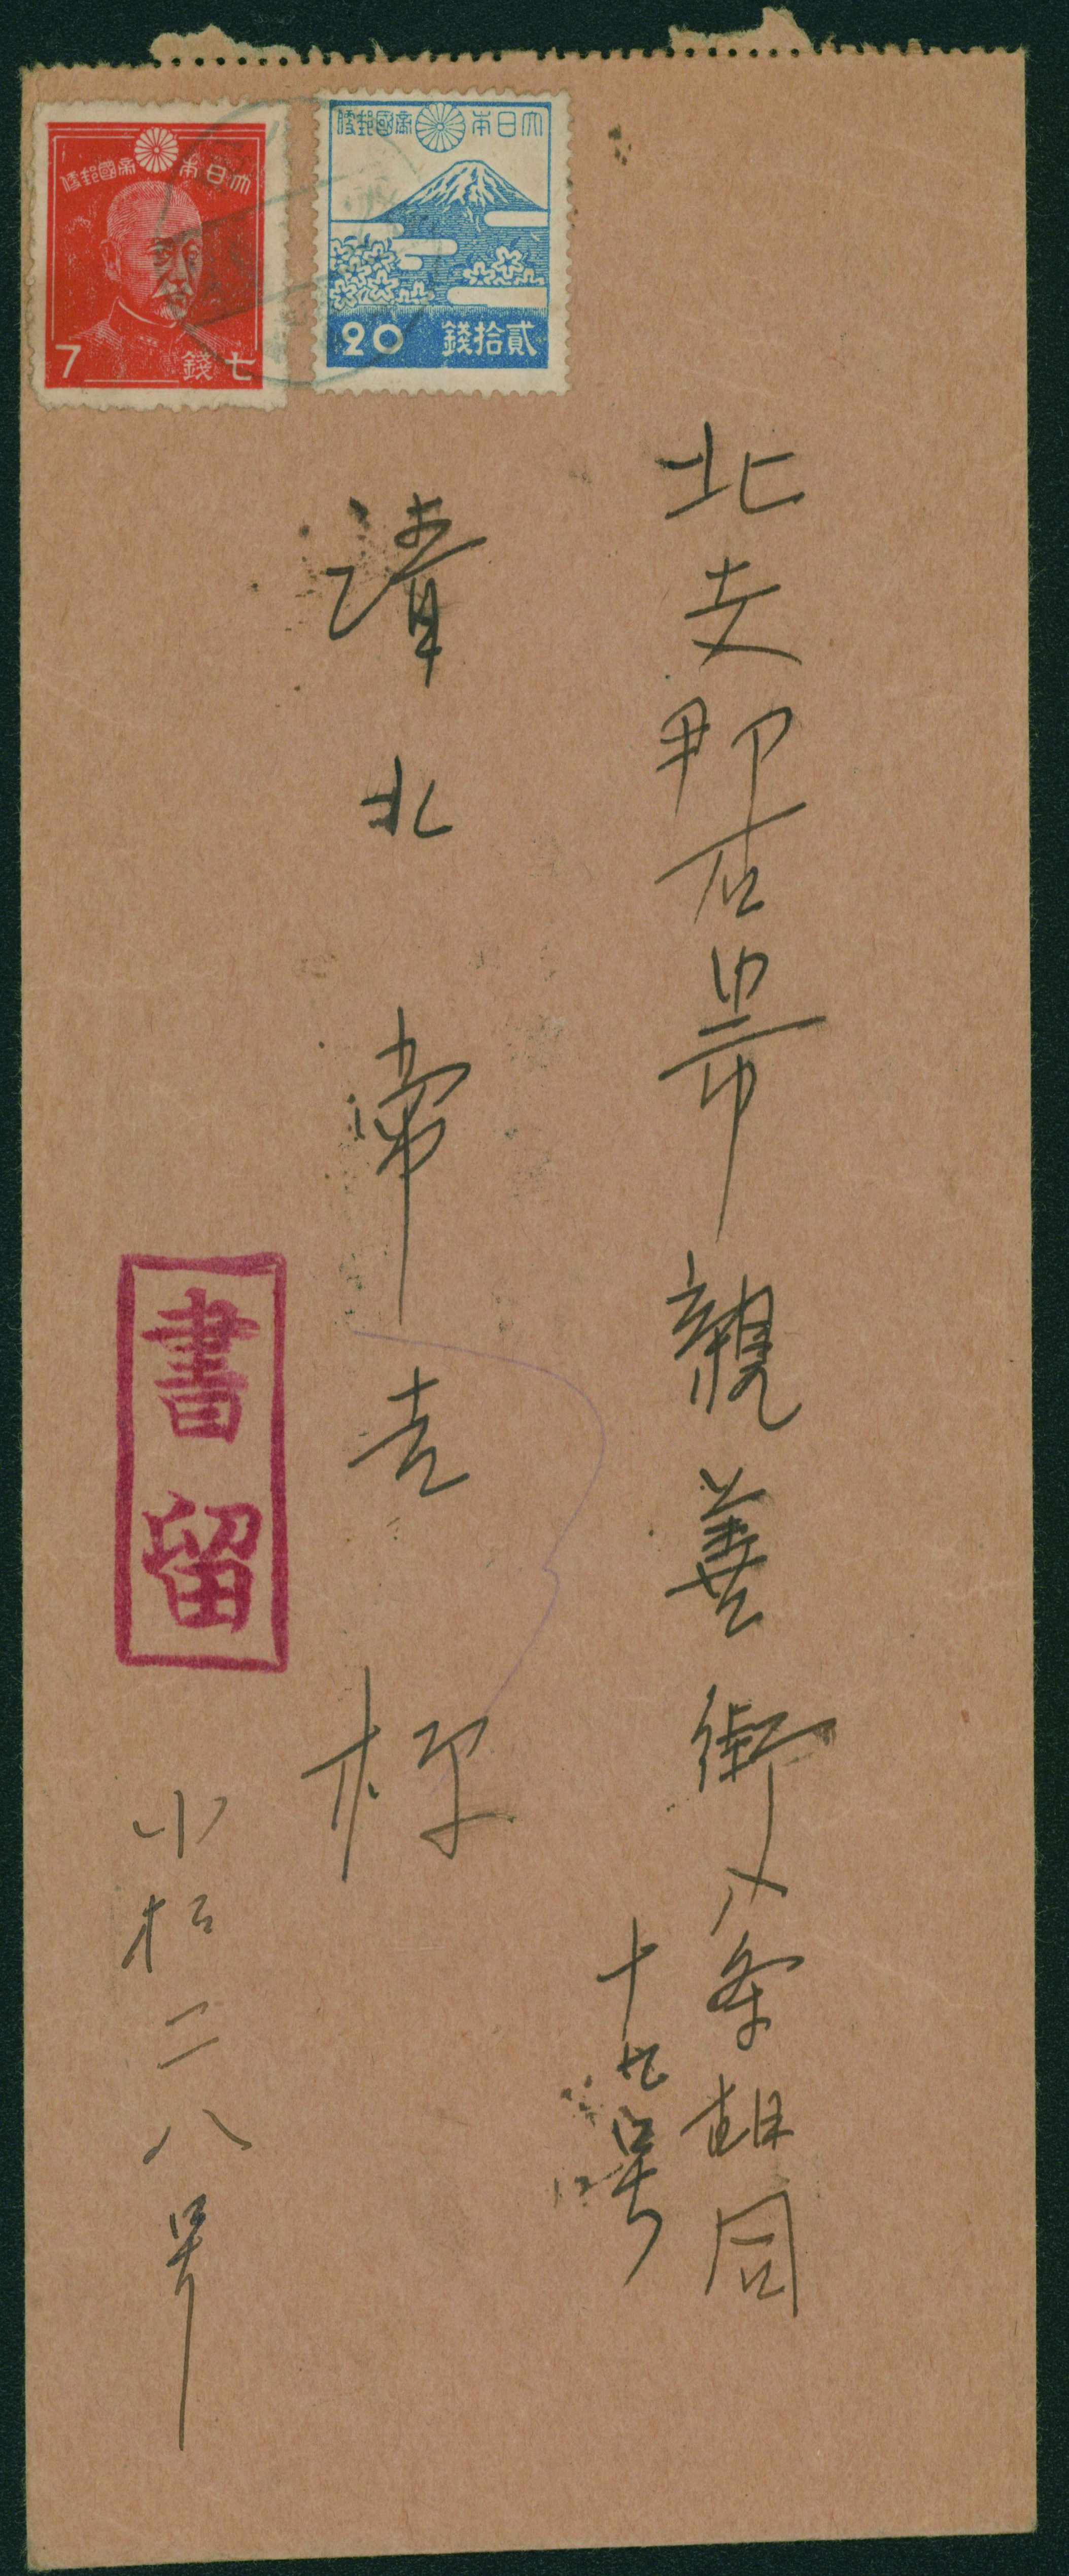 大日本帝國郵便
七錢
7
大日本帝國郵便
貳拾錢
20
北支那石門市親善街八条胡同
十九号
清北常吉様
書留
小松二八号